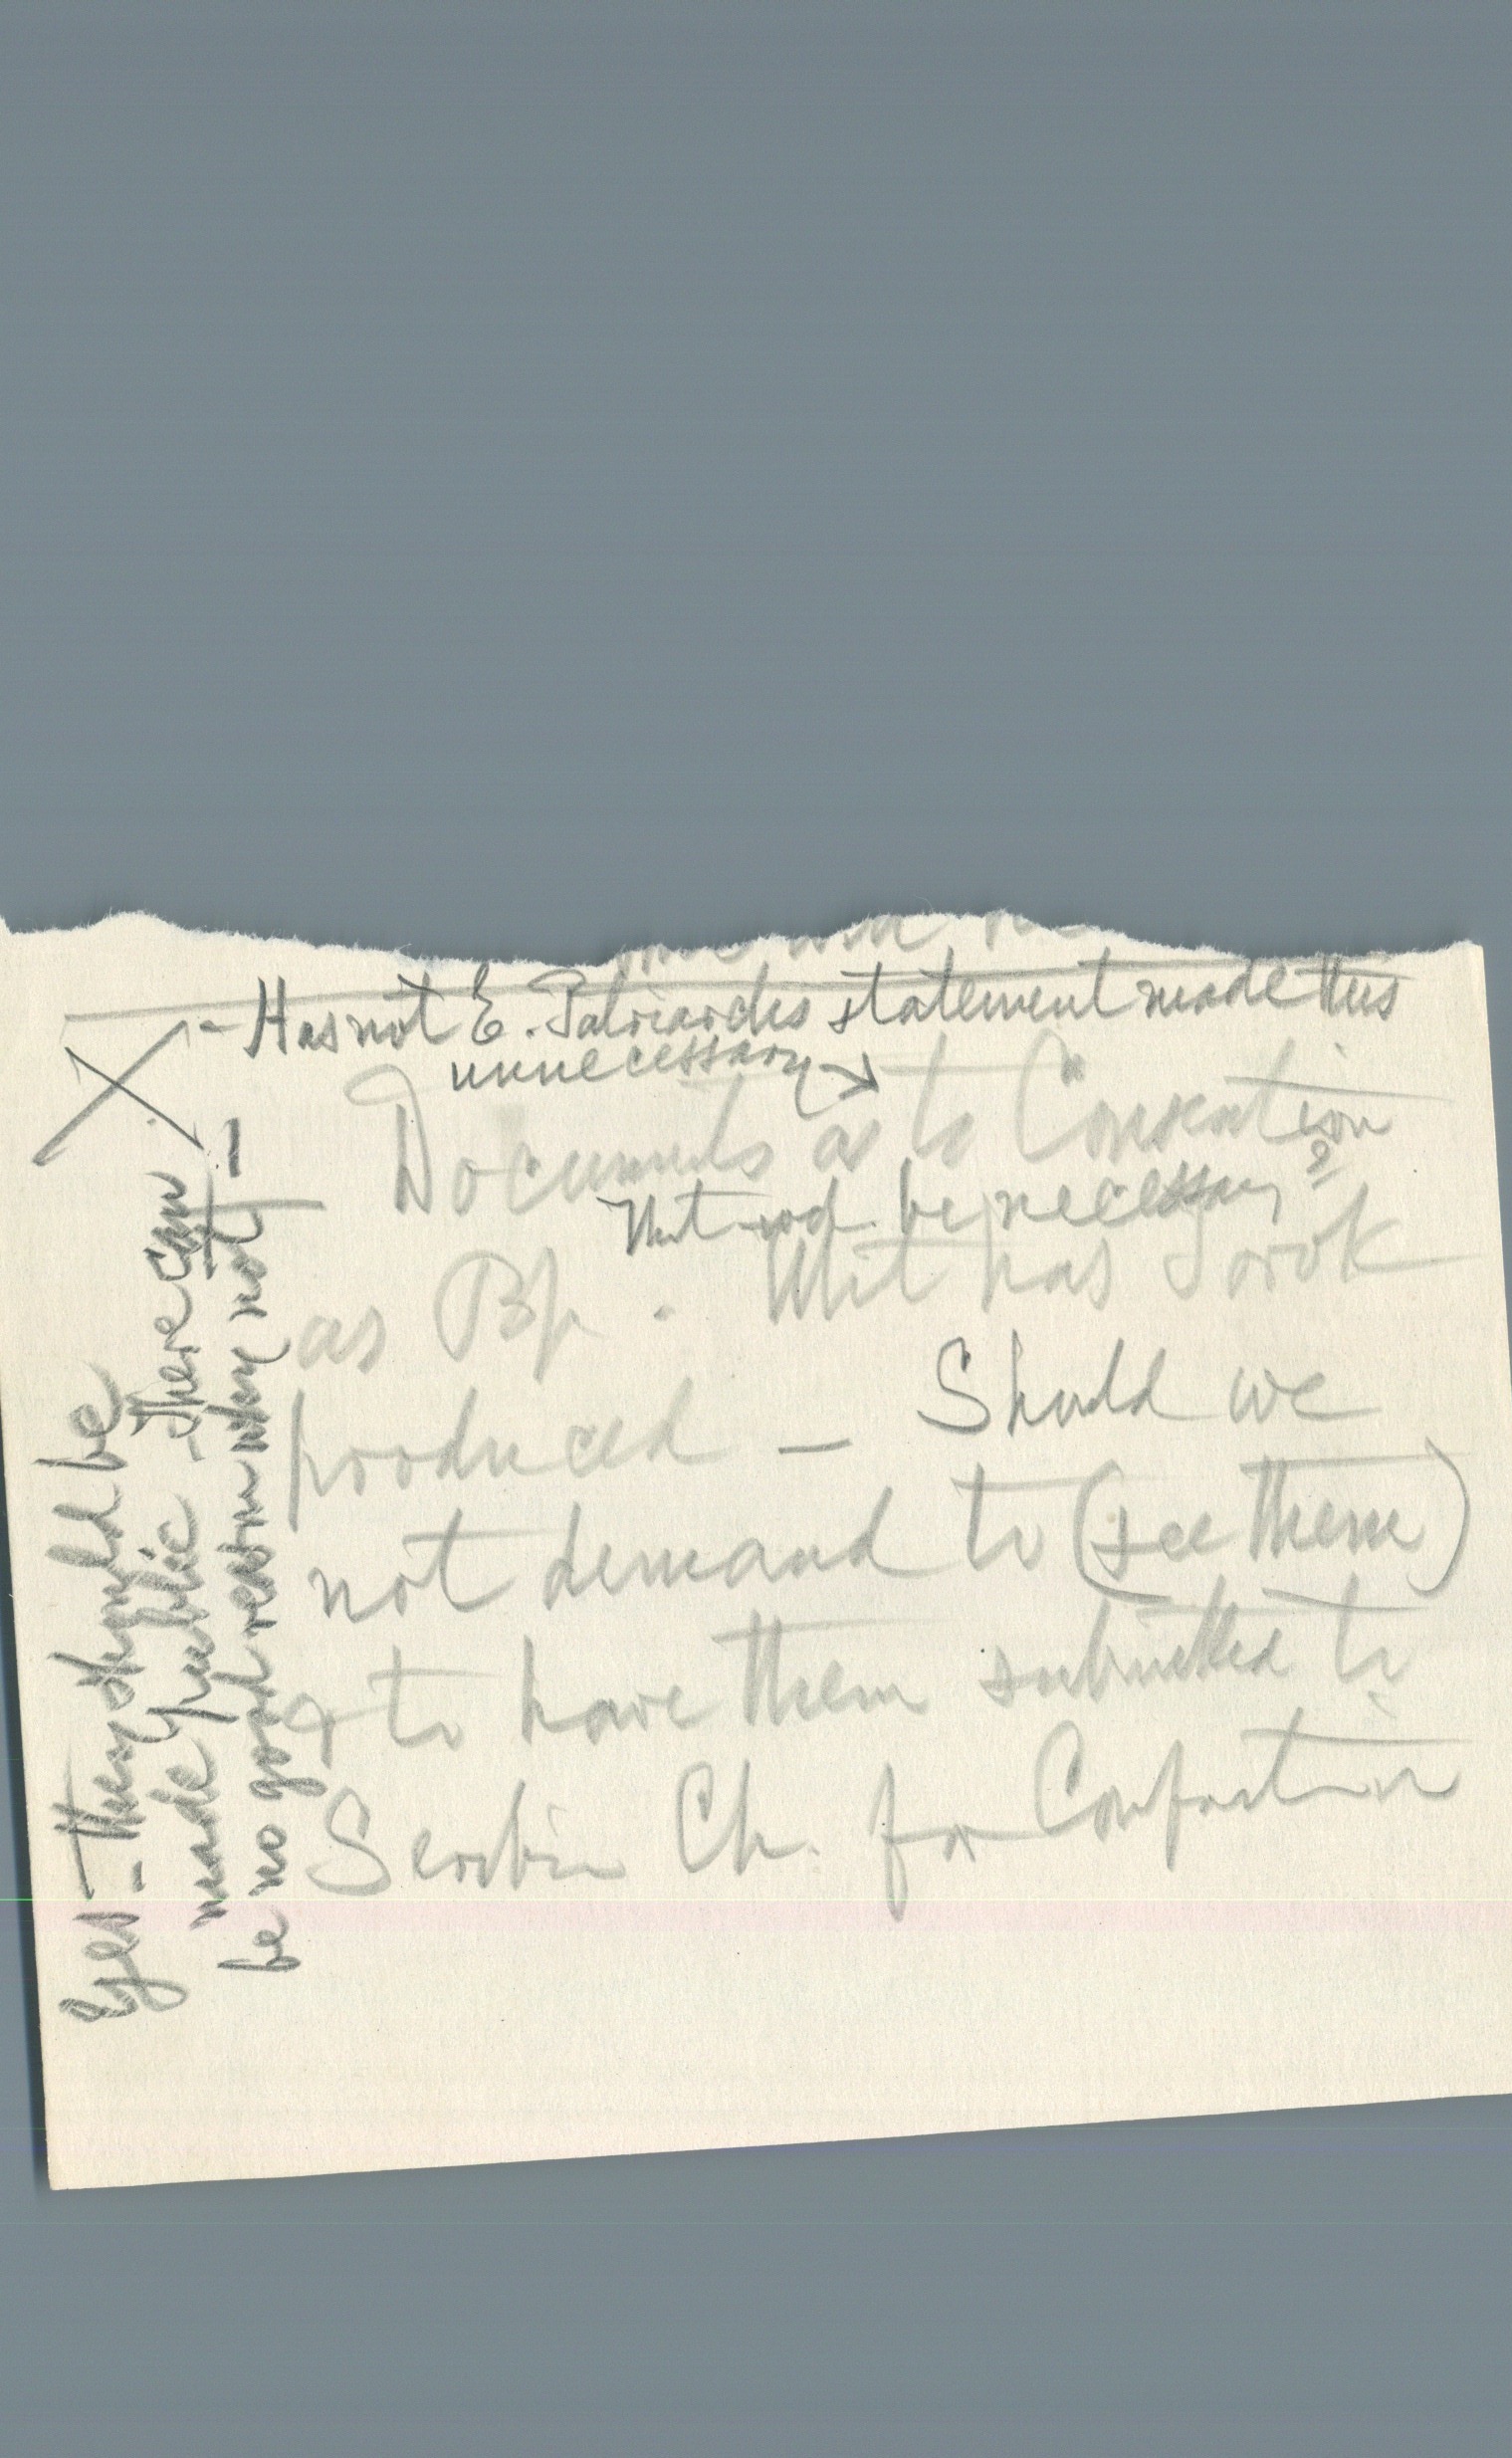 X - Has not E. Patriarchs statement made this
unnecessary →
Documents as to Consecration
that wd. be necessary?
as Bp. Mit has Torok
produced — Should we
not demand to (see them)
& to have them submitted to
Serbian Ch. for
Yes - they should be
made public - There can
be no good reason why not -